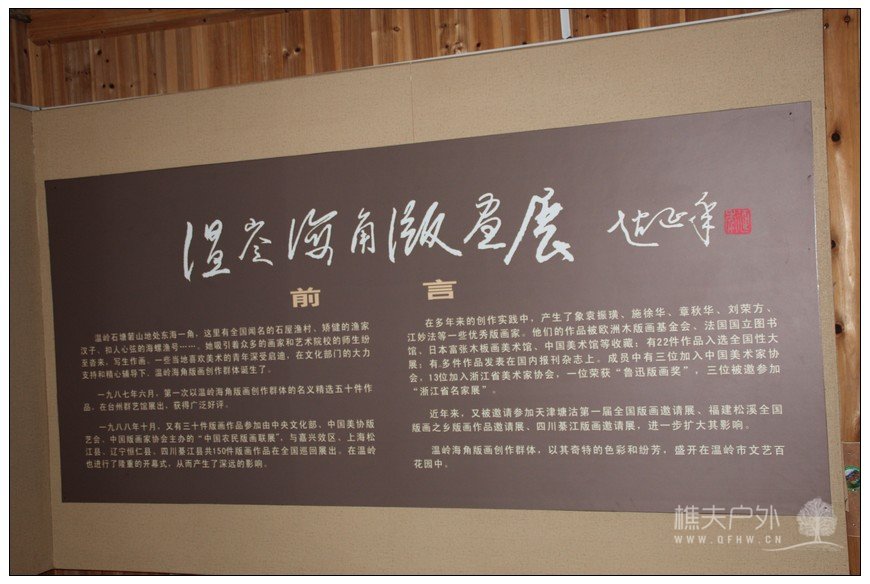 温岺海角版画展 赵延年
前言
温岭石塘箬山地处东海一角，这里有全国闻名的石屋渔村、矫健的渔家
汉子、扣人心弦的海螺渔号……。她吸引着众多的画家和艺术院校的师生纷
至沓来，写生作画。一些当地喜欢美术的青年深受启迪，在文化部门的大力
支持和精心辅导下。温岭海角版画创作群体诞生了。
一九八七年六月，第一次以温岭海角版画创作群体的名义精选五十件作
品。在台州群艺馆展出，获得广泛好评。
一九八八年十月，又有三十件版画作品参加由中央文化部、中国美协版
艺会、中国版画家协会主办的“中国农民版画联展”，与嘉兴效区、上海松
江县、辽宁恒仁县、四川綦江县共150件版画作品在全国巡回展出。在温岭
也进行了隆重的开幕式，从而产生了深远的影响。
在多年来的创作实践中，产生了象袁振璜、施徐华、章秋华、刘荣方、
江妙法等一些优秀版画家。他们的作品被欧洲木版画基金会、法国国立图书
馆、日本富张木板画美术馆、中国美术馆等收藏；有22件作品入选全国性大
展；有多件作品发表在国内报刊杂志上。成员中有三位加入中国美术家协
会，13位加入浙江省美术家协会，一位荣获“鲁迅版画奖”，三位被邀参加
“浙江省名家展”。
近年来，又被邀请参加天津塘沽第一届全国版画邀请展、福建松溪全国
版画之乡版画作品邀请展、四川綦江版画邀请展，进一步扩大其影响。
温岭海角版画创作群体，以其奇特的色彩和纷芳，盛开在温岭市文艺百
花园中。
樵夫户外
WWW.QFHW.CN